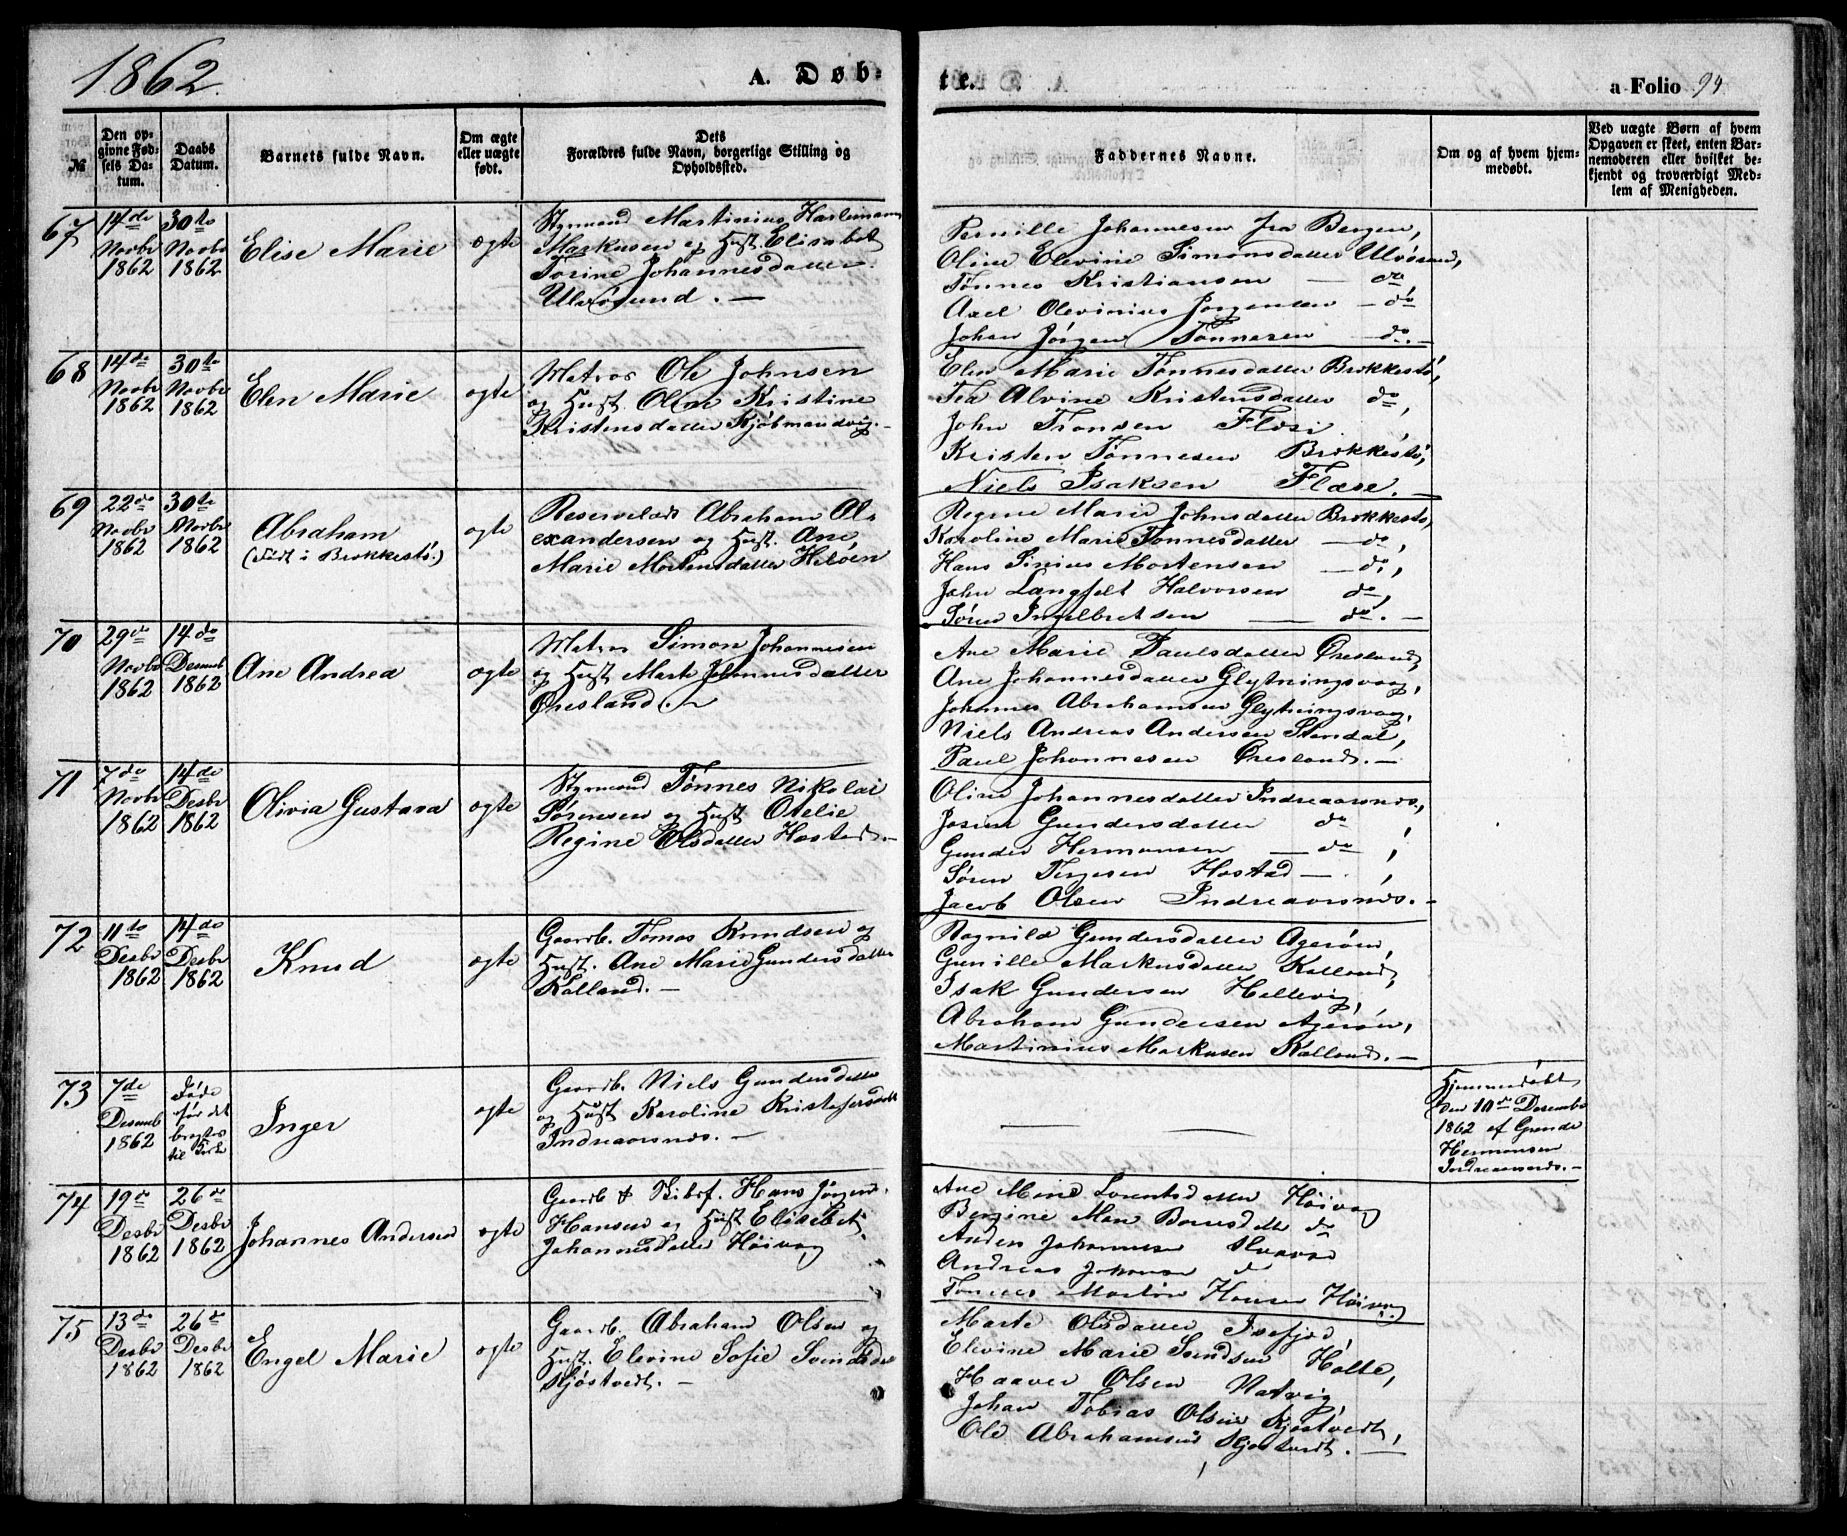 1862.
A. Døb-
te.
a Folio 94
№
Den op-
givne Fød-
sels Da-
tum.
Daabs
Datum.
Barnets fulde Navn.
Om ægte
eller uægte
født.
Dets
Forældres fulde Navn, borgerlige Stilling og
Opholdssted.
Faddernes Navne.
Om og af hvem hjem-
medøbt.
Ved uægte Børn af hvem
Opgaven er skeet, enten Bar-
nemoderen eller hvilket be-
kjendt og troværdigt Med-
lem af Menigheden.
67
14de
Novbr
1862
30te
Novbr
1862
Elise Marie
ægte
Styrmand Martinius
Markusen og Hust. Elisabet
Torine Johannesdatter
Ulvøsund. —
Pernille Johannesen fra Bergen,
Oline Elevine Simonsdatter Ulvøsund,
Tønnes Kristiansen — do,
Axel Olevinius Jørgensen — do
Johan Jørgen Tønnesen — do. —
68
14de
Novbr
1862
30te
Novbr
1862
Elen Marie
ægte
Matros Ole Johnsen
og Hust. Oline Kristine
Kristensdatter Kjøbmandsvig. —
Elen Marie Tønnesdatter Brokkestø,
Tea Alvine Kristensdatter do,
John Tronsen
Kristen Tønnesen Brokkestø,
Niels Isaksen Flære. —
69
22de
Novbr
1862
30te
Novbr
1862
Abraham
(Født i Brokkestø.)
ægte
Reservelods Abraham Al-
exandersen og Hust. Ane
Marie Mortensdatter Heløen
Regine Marie Johnsdatter Brokkestø,
Karoline Marie Tønnesdatter — do,
Hans Sinius Mortensen — do,
John Langfelt Halvorsen do,
Søren Ingelbretsen — do. —
70
29de
Novbr
1862
14de
Desemb
1862
Ane Andrea
ægte
Matros Simon Johannesen
og Hust Marte Johannesdatter
Øresland. —
Ane Marie Paulsdatter Øresland,
Ane Johannesdatter Glytningsvaag,
Johannes Abrahamsen Glytningsvaag,
Niels Andreas Andersen Stendal,
Paul Johannesen Øresland. —
71
7de
Novbr
1862
14de
Desbr
1862
Olivia Gustava
ægte
Styrmand Tønnes Nikolai
Sørensen og Hust Otelie
Regine Olsdatter Hæstad. —
Oline Johannesdatter Indreaarsnes,
Josine Gundersdatter do,
Gunder Hermansen — do,
Søren Terjesen Hæstad —,
Jacob Olsen Indreaarsnes. —
72
11te
Desbr
1862
14de
Desbr
1862
Knud
ægte
Gaardb. Tomas Knudsen og
Hust. Ane Marie Gundersdatter
Kalland. —
Ragnild Gundersdatter Agerøen,
Gunille Markusdatter Kalland,
Isak Gundersen Hellevig,
Abraham Gundersen Agerøen,
Martinius Markusen Kalland. —
73
7de
Desemb
1862
Døde
før det
bragtes
til Kirke
Inger
ægte
Gaardb. Niels Gundersen
og Hust Karoline Kristofersdatter
Indreaarsnes. —
— — —
Hjemmedøbt
den 10de Desember
1862 af Gunder
Hermansen
Indreaarsnes. —
74
19de
Desbr
1862
26de
Desbr
1862
Johannes Andersen
ægte
Gaardb & Skibsf. Hans Jørgen
Hansen og Hust Elisabet
Johannesdatter Høivaag
Ane Marie Lorentsdatter Høivaag
Bergine Do
Anders Johannesen
Andreas Johansen do
Tønnes Martin Hansen Høivaag.
75
13de
Desbr
1862
26de
Desbr
1862
Engel Marie
ægte
Gaardb. Abraham Olsen og
Hust. Elevine Sofie Svendsdatter
Skjøstvedt. —
Marte Olsdatter Isefjær,
Elevine Marie Svendsen Holte,
Haaver Olsen Natvig,
Johan Tobias Olsen Skjøstvedt,
Ole Abrahamsen Skjøstvedt. —